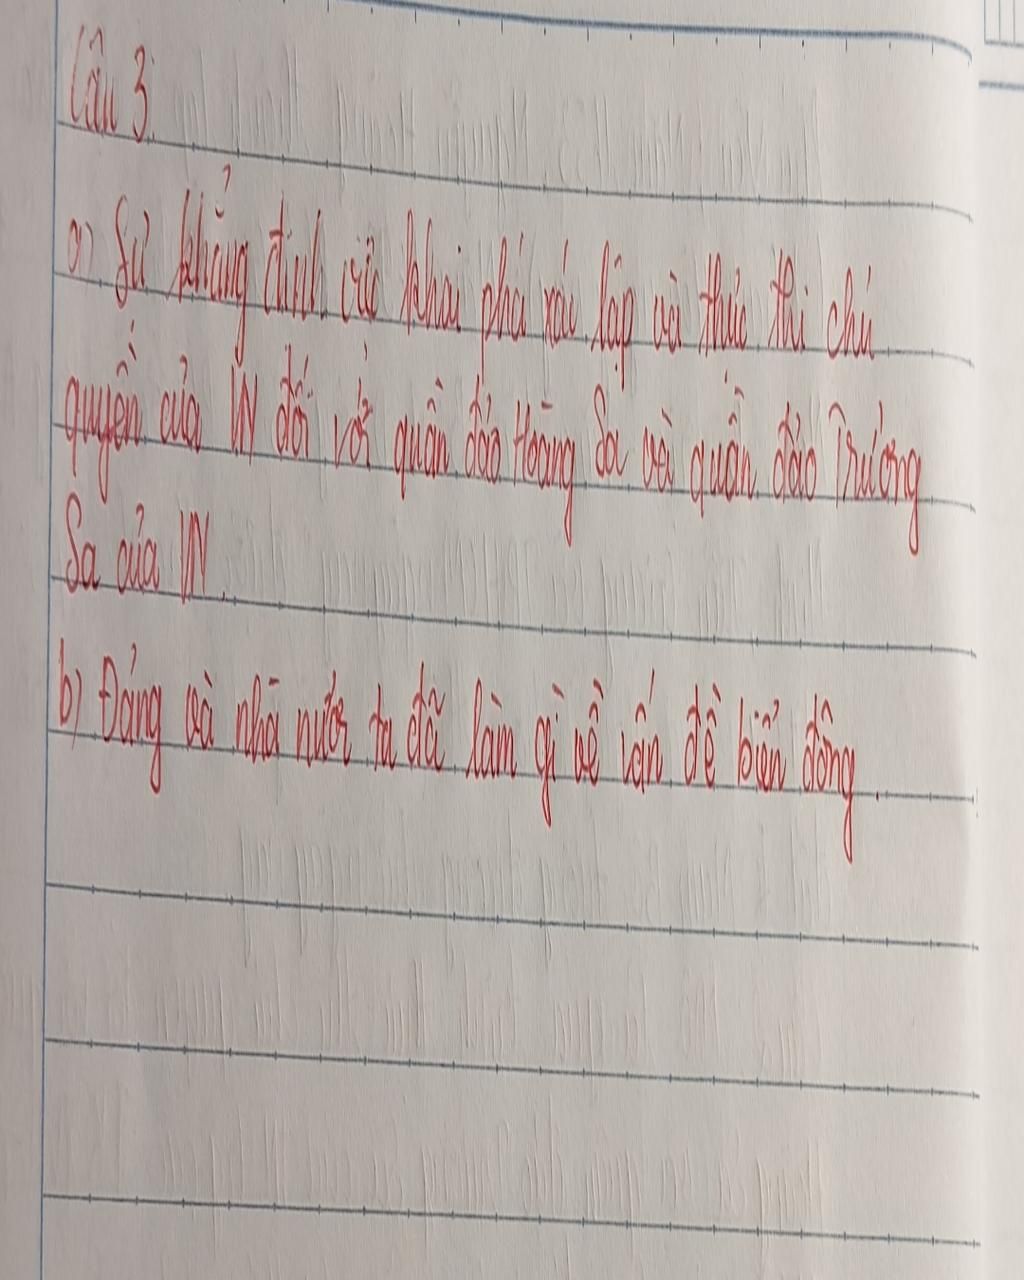 Câu 3.
a) Sự khẳng định việc khai phá xác lập và thực thi chủ
quyền của VN đối với quần đảo Hoàng Sa và quần đảo Trường
Sa của VN.
b) Đảng và nhà nước ta đã làm gì về vấn đề biển đông.